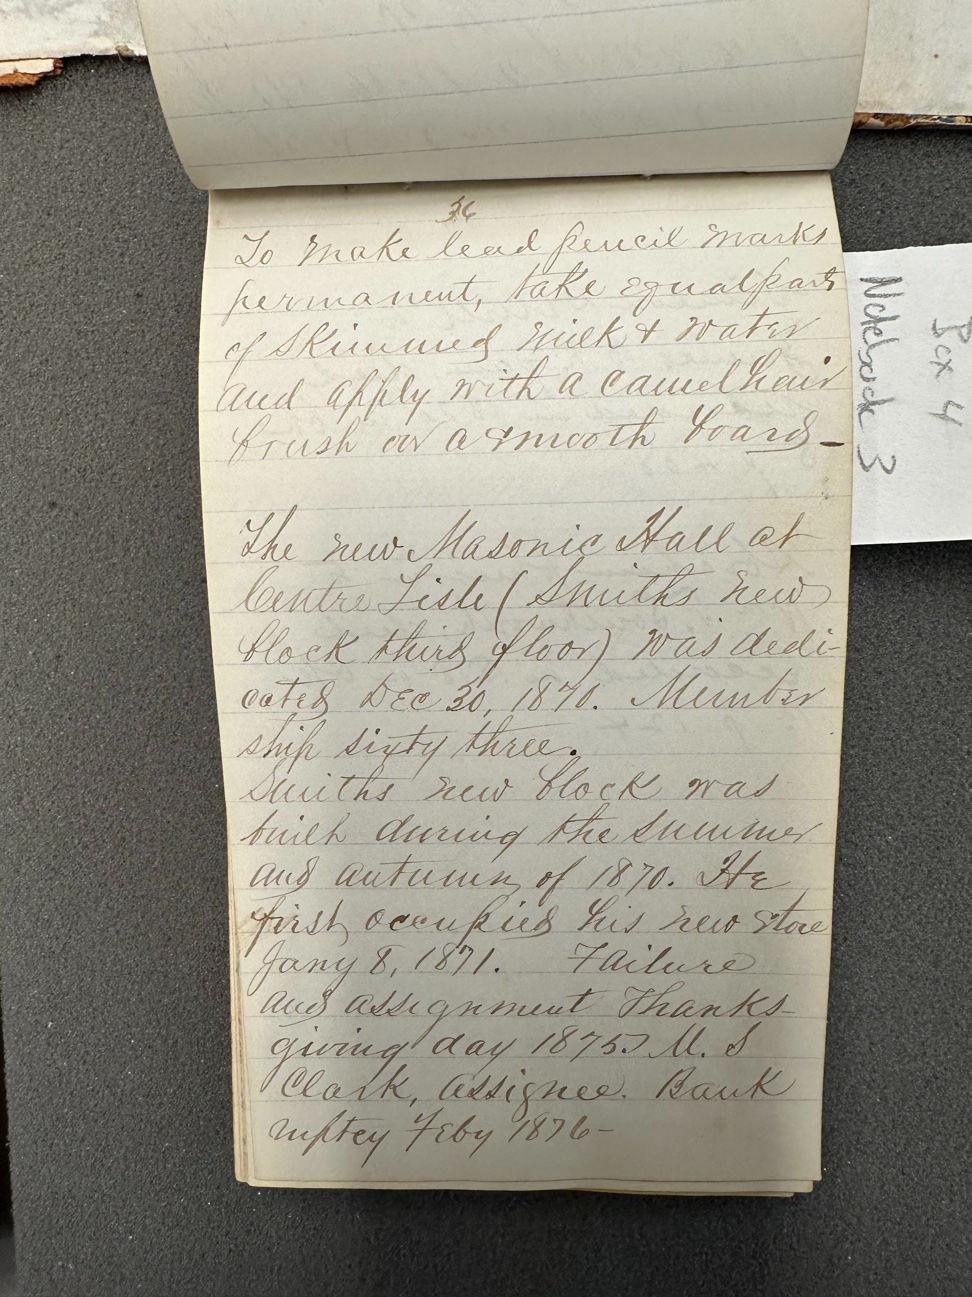 36
To make lead pencil marks
permanent, take equal parts
of skimmed milk & water
and apply with a camel hair
brush or a smooth board -
The new Masonic Hall at
Centre Lisle (Smiths new
block third floor) was dedi-
cated Dec 30, 1870. Member
ship sixty three.
Smiths new block was
built during the summer
and autumn of 1870. He
first occupied his new store
Jany 8, 1871. Failure
and assignment Thanks-
giving day 1875. M. S
Clark, assignee. Bank
ruptcy Feby 1876 -
Box 4
Notebook 3